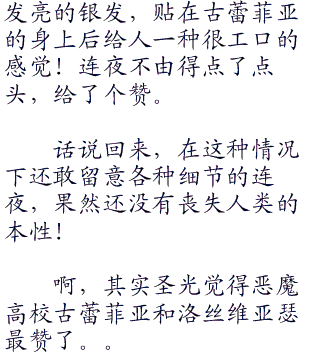 发亮的银发，贴在古蕾菲亚
的身上后给人一种很工口的
感觉！连夜不由得点了点
头，给了个赞。
话说回来，在这种情况
下还敢留意各种细节的连
夜，果然还没有丧失人类的
本性！
啊，其实圣光觉得恶魔
高校古蕾菲亚和洛丝维亚瑟
最赞了。。